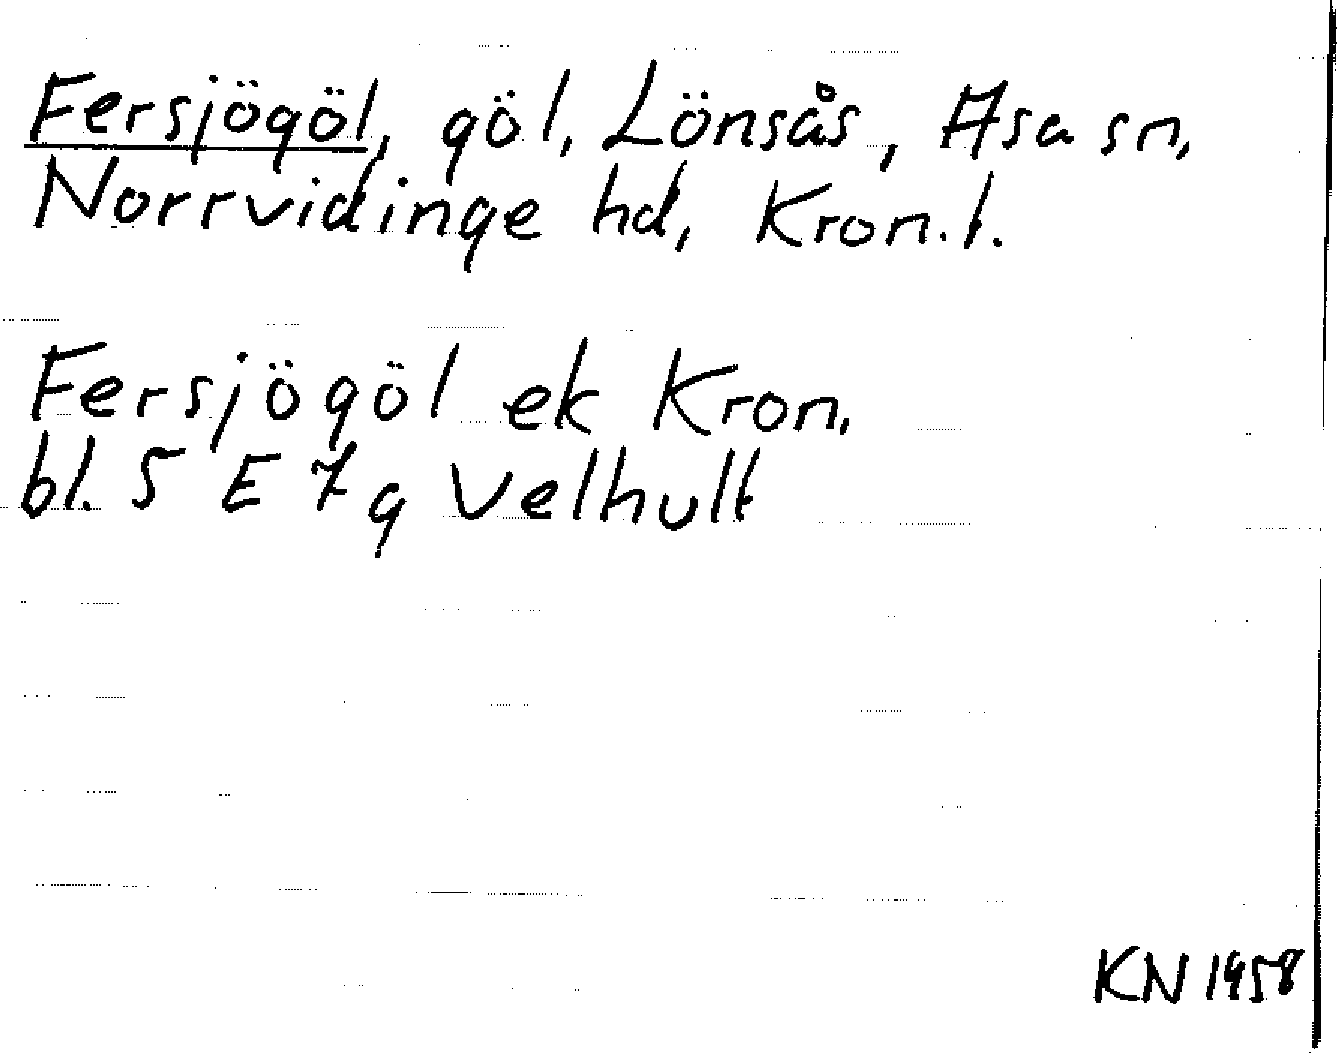 Fersjögöl, göl, Lönsås, Asa sn,
Norrvidinge hd, Kron. l.
Fersjögöl ek Kron,
bl. 5 E 7 g Velhult
KN 1958